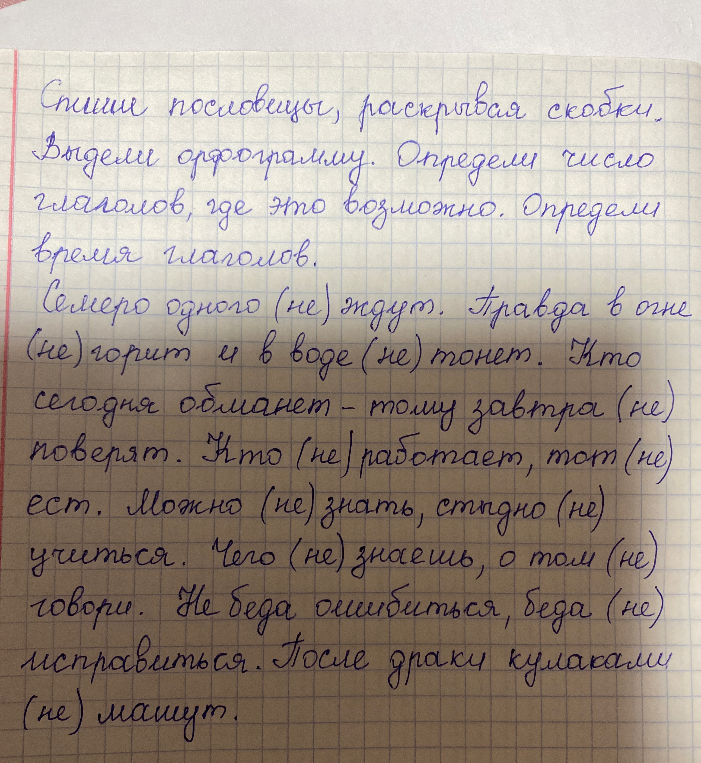 Спиши пословицы, раскрывая скобки.
Выдели орфограмму. Определи число
глаголов, где это возможно. Определи
время глаголов.
Семеро одного (не) ждут. Правда в огне
(не) горит и в воде (не) тонет. Кто
сегодня обманет – тому завтра (не)
поверят. Кто (не) работает, тот (не)
ест. Можно (не) знать, стыдно (не)
учиться. Чего (не) знаешь, о том (не)
говори. Не беда ошибиться, беда (не)
исправиться. После драки кулаками
(не) машут.